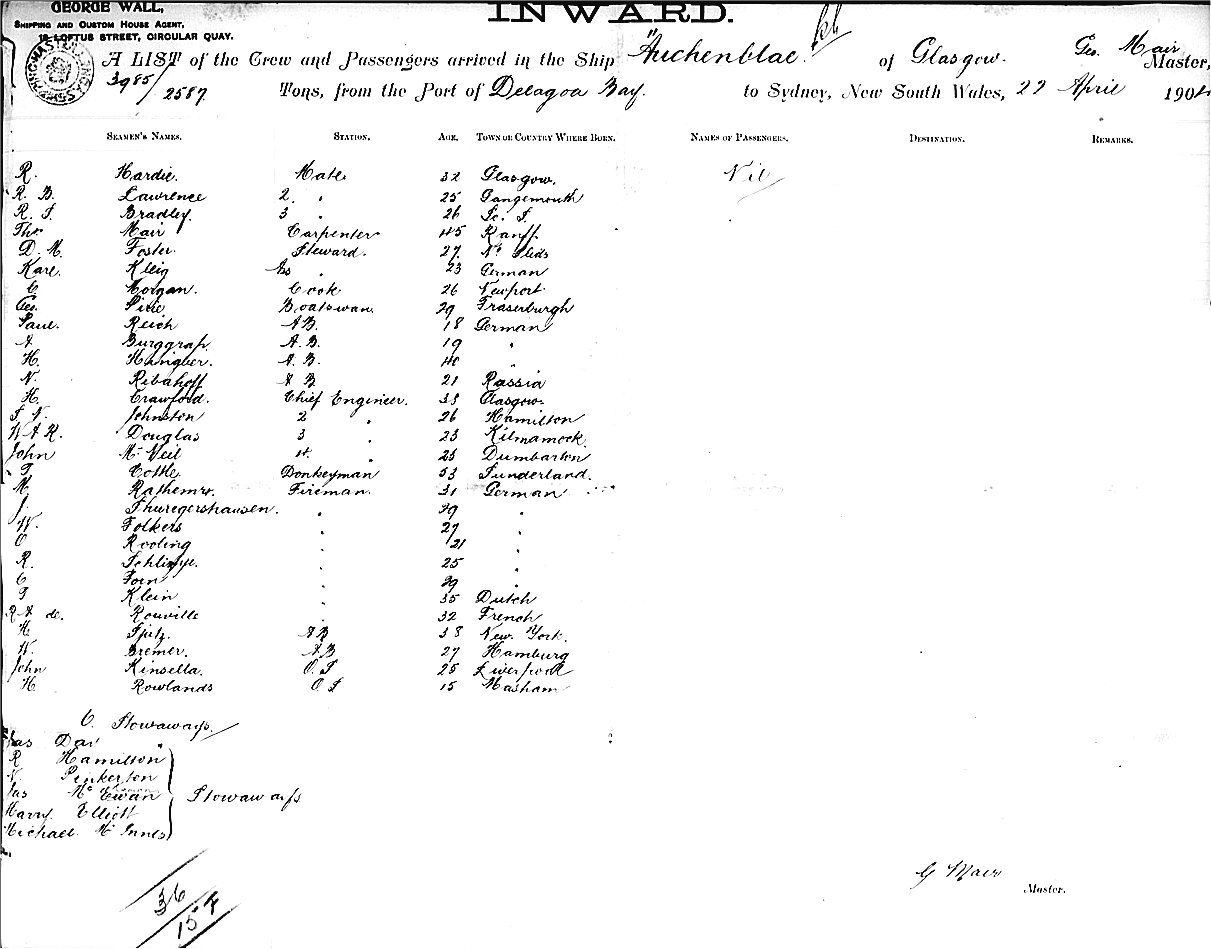 GEORGE WALL,
SHIPPING AND CUSTOM HOUSE AGENT,
LOFTUS STREET, CIRCULAR QUAY.
INWARD.
A LIST of the Crew and Passengers arrived in the Ship "Auchenblae" of Glasgow. Geo. Mair Master,
3985/2587 Tons, from the Port of Delagoa Bay. to Sydney, New South Wales, 22 April 190
SEAMEN'S NAMES. STATION. AGE. TOWN OR COUNTRY WHERE BORN. NAMES OF PASSENGERS. DESTINATION. REMARKS.
R. Hardie. Mate 32 Glasgow. Nil
R. B. Lawrence 2 " 25 Gangemouth
R. Bradley. 3 " 26
Thos Mair Carpenter 45 Banff.
D. M. Foster. Steward. 27
Karl. Kleig As " 23 German
C. Morgan. Cook 26 Newport
Geo. Pirie Boatswan 29 Fraserburgh
Paul. Reich A.B. 18 German
A. Burggraf. A. B. 19 "
H. A. B. 40 "
N. Ribahoff A B. 21 Russia
H. Crawford. Chief Engineer. 38 Glasgow.
Johnston 2 " 26 Hamilton
W A R. Douglas 3 " 23 Kilmarnock
John Mc Neil 4. " 23 Dumbarton
T Cottle. Donkeyman 53 Sunderland.
M. Fireman. 31 German
J. Thuregershausen. " 29 "
W. Folkers " 27 "
C Rooling " 21 "
R. " 25 "
C " 29 "
T Klein " 35 Dutch
R A de. Rouville " 32 French
H Spitz. A B 38 New York.
W. Bremer. A.B 27 Hamburg
John Kinsella. O. S 25 Liverpool
H Rowlands O S 15 Masham
6. Stowaways.
Jas Day
R Hamilton
N. Pinkerton
Jas Mc Ewan Stowaways
Harry. Elliott
Michael. Mc Innes
36
15 F
G Mair Master.